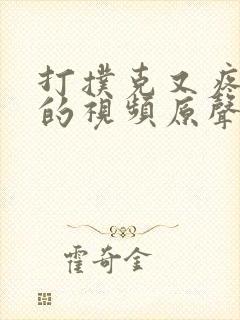 打撲克又疼
的視頻原聲
霍奇金